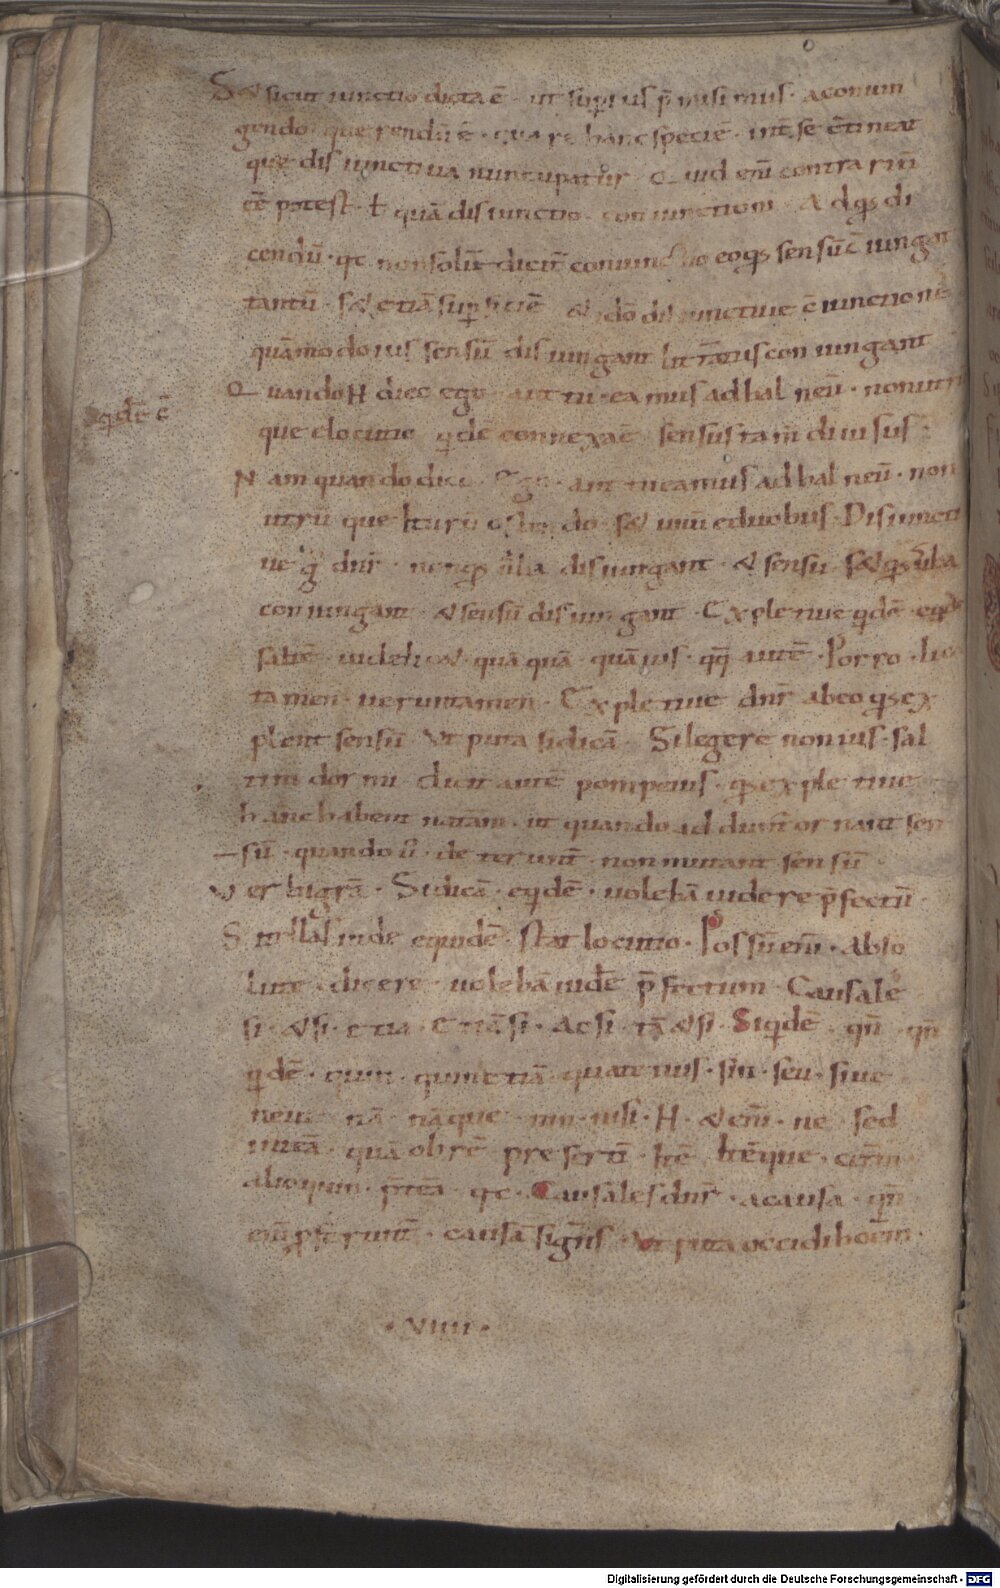 S& sicut iunctio dicta ē · ut supius p̄misimus · a coniun
gendo · querendū ē · quare hanc speciē · int se c̄tineat
que disiunctiua nuncupatur · Quid eni contrariū
eē potest · ł quā disiunctio coniunctioni · Ad qs di
cendū · qc non solū dicit coniunctio eo qs sensū iungat
tantū · s& etiā supficiē
quāmodo ius sensū disiungant litraturis coniungant
Quando H dico ego aut tu eamus ad balneū · non utrū
qdē ē
que elocutio qdē connexa ē sensus tam̄ diuisus ·
Nam quando dico Ego aut tu eamus ad balneū · non
utrū que iturū ostendo s& unū e duobus · Disiuncti
ue g̊ dnr̄ uba disiungant · & sensū s& qs uba
coniungant · & sensū disiungant · Expletiue qdē · eqdē
saltē · uidelic& · quāquā · quāuis · qq̄ autē · Porro · lic&
tamen · ueruntamen · Expletiue dnr̄ ab eo qs ex
plent sensū Ut puta si dicā · Si legere non uis · sal
tim dormi · dicit autē pompeius · qs expletiue
hanc habent natām · ut quando addunt ornant sen
sū · quando ū · deterunt · non mutant sensū ·
Verbi grā · Si dicā · eqdē · uolebā uidere p̄fectū ·
Si tollas inde equidē · stat locutio · Possū eni · abso
lute dicere uolebā uidē p̄fectum · Causale
si · &si · etiā Etiāsi · Ac si · tā&si · Siqdē · qn̄ · qn̄
qdē · quin · quinetiā quatenus · sin · seu · siue
neue nā · nāque · nni · nisi · H · &eni · ne · sed
intēa · quā ob rē preserti · itē itēque · cetm̄
alioquin · p̄tea · qc · Causales dnr̄ · a causa · qn̄
eni pferunt̄ · causā signs · Ut puta occidi hoēm ·
· VIIII ·
Digitalisierung gefördert durch die Deutsche Forschungsgemeinschaft · DFG